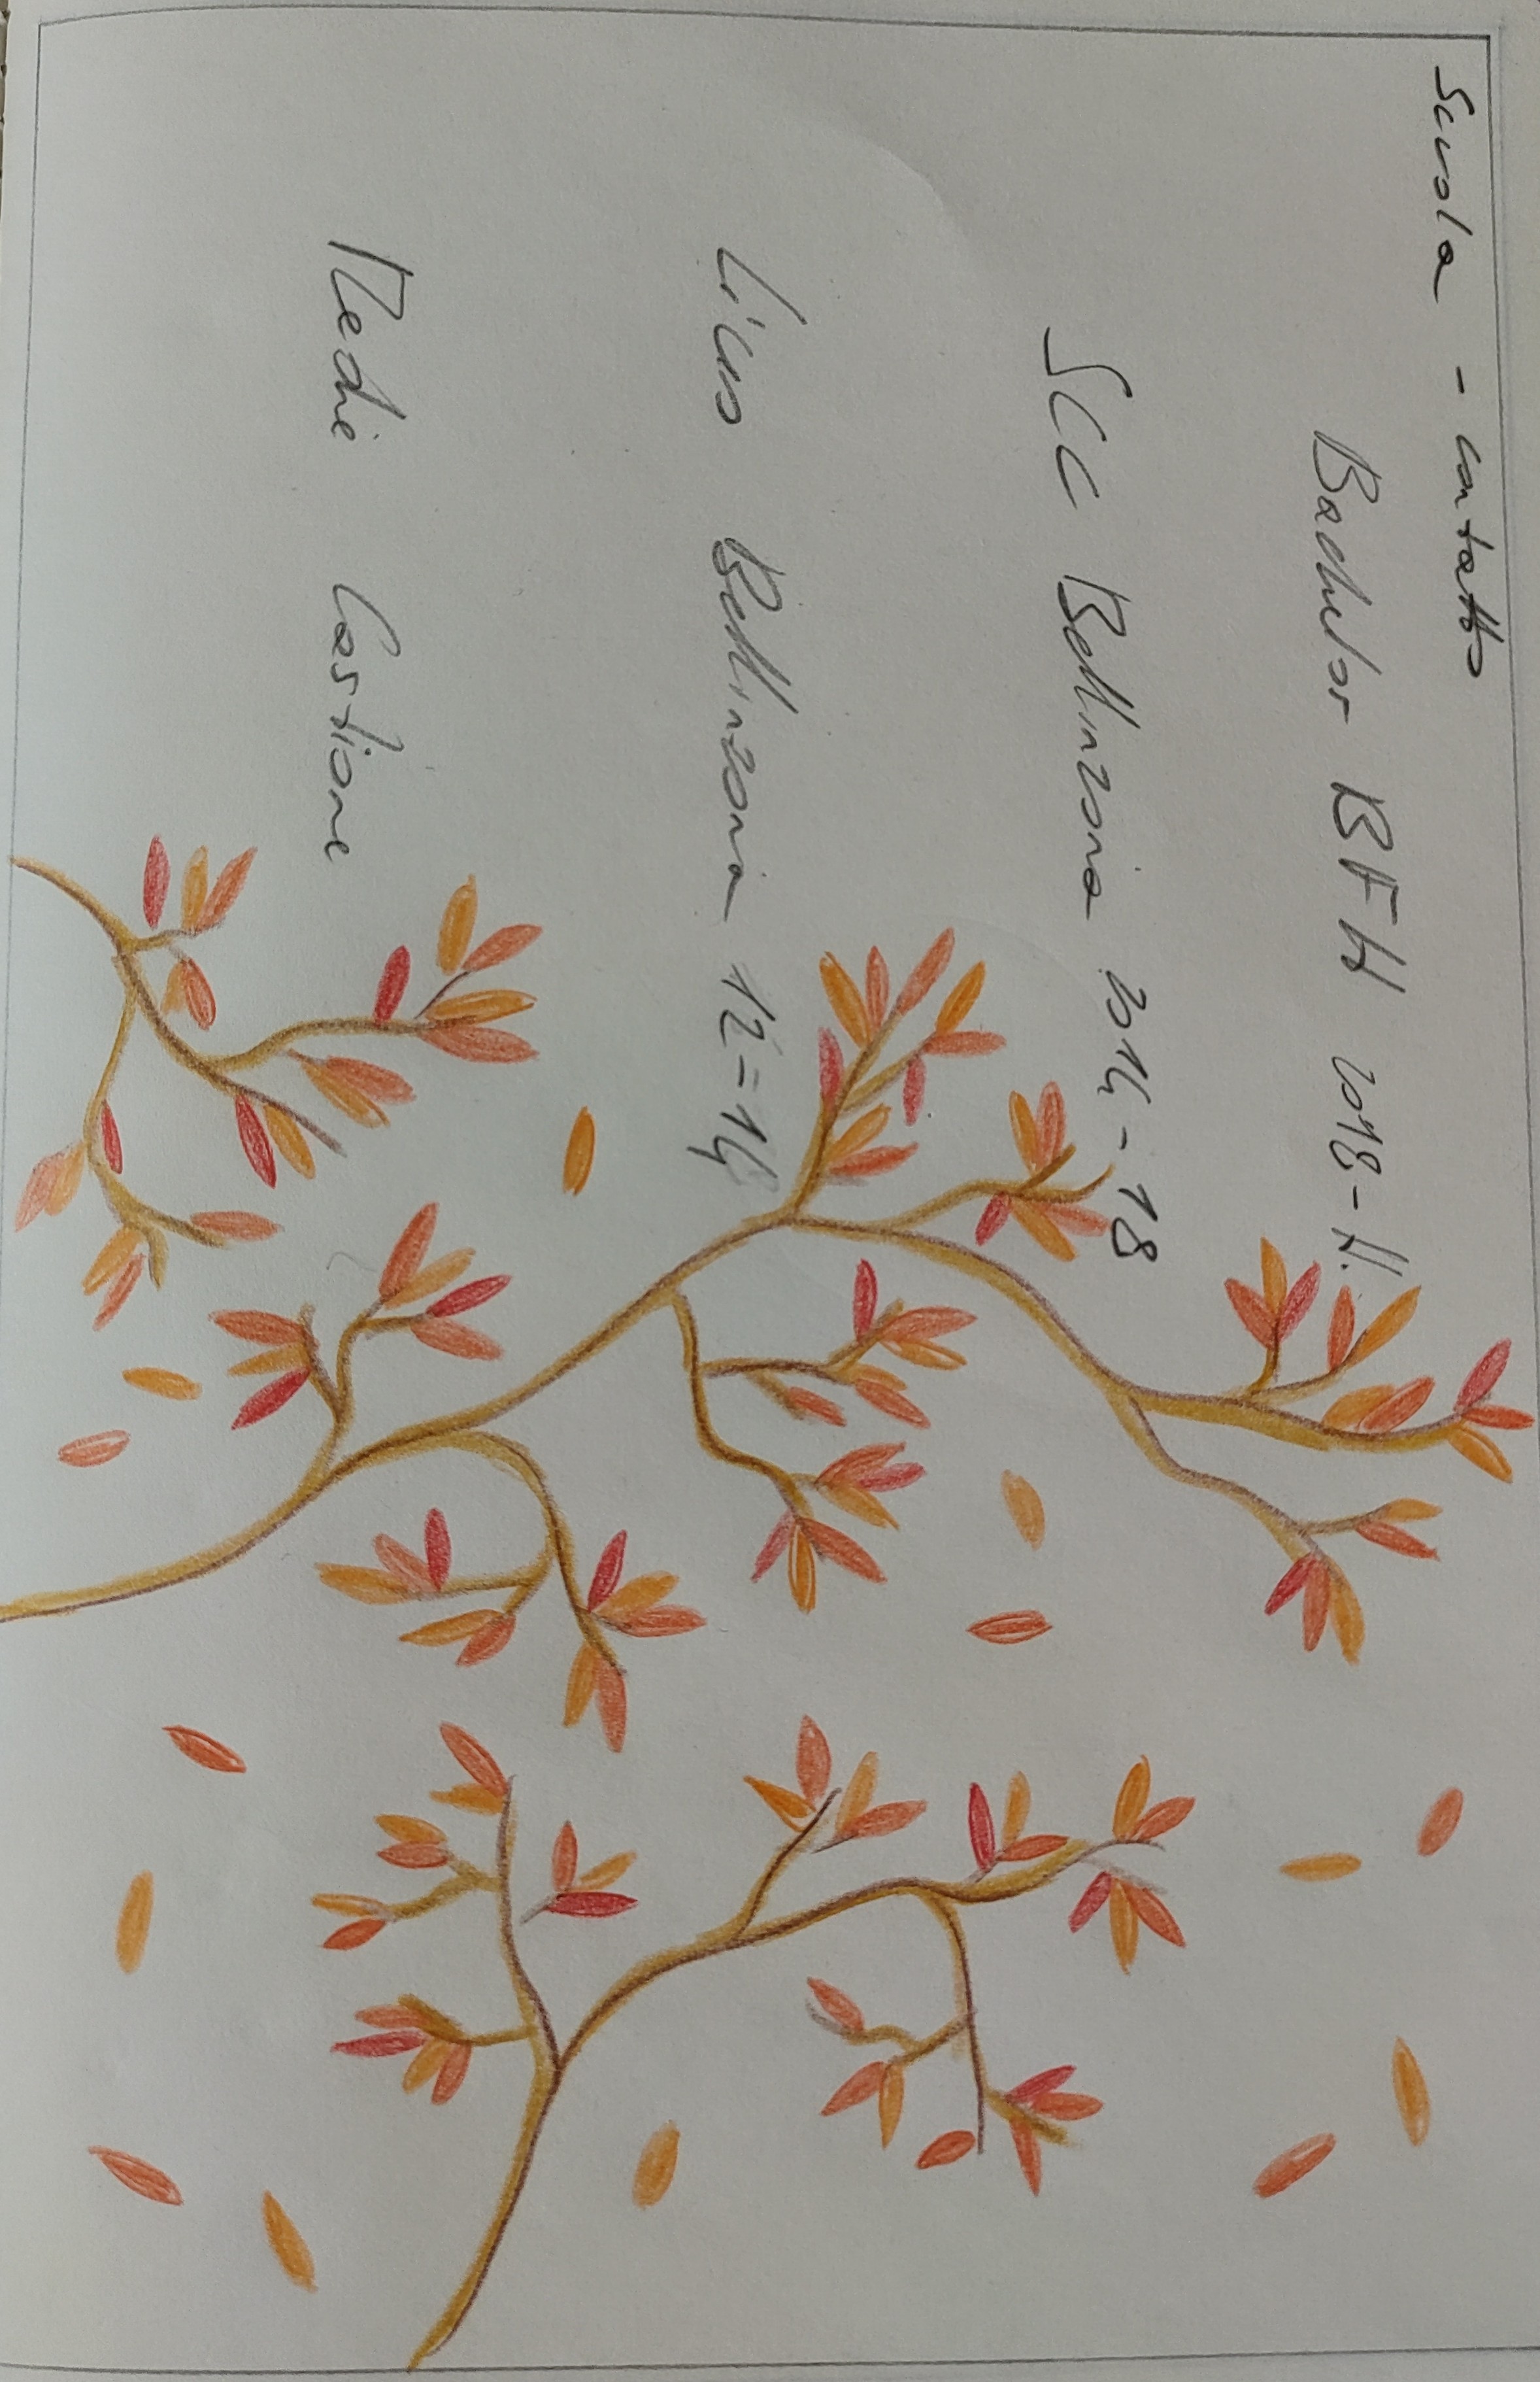 Scuola - contatto
Bachelor BFH 2018-
SCC Bellinzona 2014-18
Liceo Bellinzona 12-14
Medie Castione